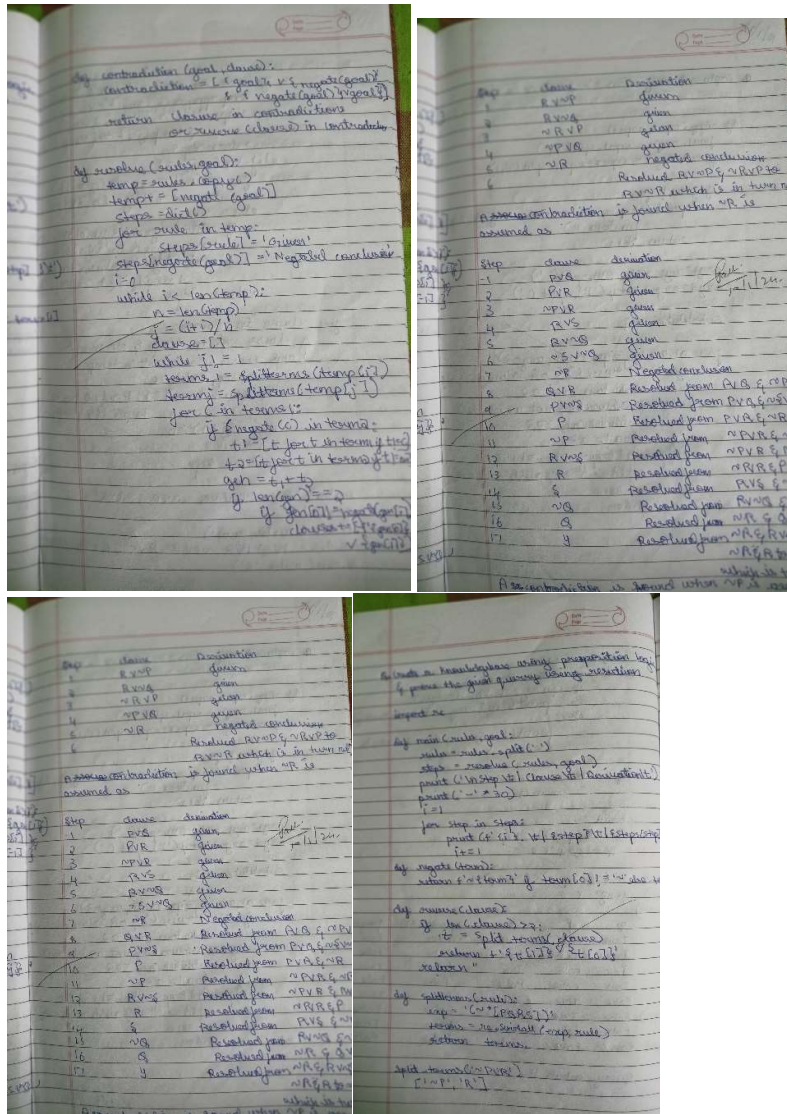 def contradiction (goal, clause):
contradiction = [ { goal } v { negate(goal)}
{ negate(goal) } v {goal}]
return clause in contradictions
or reverse (clause) in contradiction
def resolve (rules, goal):
temp = rules.copy()
temp+ = [negate (goal)]
steps = dict()
for rule in temp:
steps [rule] = 'Given'
steps[negate(goal)] = 'Negated conclusion
i=0
while i < len(temp):
n = len(temp)
j = (i+1)/n
clause = []
while j! = 1
terms1 = splitterms(temp[i])
for c in terms1:
if negate (c) in term2:
t1 = [t for t in term if t!=c]
t2 = [t for t in term2 if t
gen = t1 + t2
if len(gen) == 2
if gen[0]!=negate(gen[1])
Step clause Derivation
1 RV~P given
2 RV~Q given
3 ~RVP given
4 ~PVQ given
5 ~R negated conclusion
6 Resolved RV~P & ~RVP to
RV~R which is in turn
contradiction is found when ~R is
assumed as
Step clause derivation
1 PVQ given
2 PVR given
3 ~PVR given
4 RVS given
5 RV~Q given
6 ~SV~Q given
7 ~R Negated conclusion
8 QVR Resolved from PVQ & ~P
9 PV~S Resolved from PVQ & ~S
10 P Resolved from PVR & ~R
11 ~P Resolved from ~PVR & ~
12 RV~S Resolved from ~PVR &
13 R Resolved from ~PVR & P
14 S Resolved from RVS & ~
15 ~Q Resolved from RV~Q &
16 Q Resolved from ~R & Q
17 y Resolved from ~R & RV
~R & R to
which is
contradiction is found when ~P is
Step clause Derivation
1 RV~P given
2 RV~Q given
3 ~RVP given
4 ~PVQ given
5 ~R negated conclusion
6 Resolved RV~P & ~RVP to
RV~R which is in turn
contradiction is found when ~R is
assumed as
Step clause derivation
1 PVQ given
2 PVR given
3 ~PVR given
4 RVS given
5 RV~Q given
6 ~SV~Q given
7 ~R Negated conclusion
8 QVR Resolved from PVQ & ~PV
9 PV~S Resolved from PVQ & ~SV~
10 P Resolved from PVR & ~R
11 ~P Resolved from ~PVR & ~R
12 RV~S Resolved from ~PVR & P
13 R Resolved from ~PVR & P
14 S Resolved from RVS & ~
15 ~Q Resolved from RV~Q & ~
16 Q Resolved from ~R & QV
17 y Resolved from ~R & RV
~R & R to
which is
create a knowledgebase using preposition log
& prove the given query using resolution
import re
def main (rules, goal:
rules = rules.split(' ')
steps = resolve (rules, goal)
print ('\nStep \t | Clause \t | Derivation\t')
print('-' * 30)
i=1
for step in steps:
i+=1
def negate (term):
return f'~{term}' if term[0]! = '~' else
def reverse (clause):
if len (clause) > 2:
t = split_terms (clause)
return f'{t[1]} v {t[0]}'
return ''
def splitterms (rule):
exp = '(~*[PQRS])'
terms = re.findall (exp, rule)
return terms
split_terms ('~PVR')
['~P', 'R']